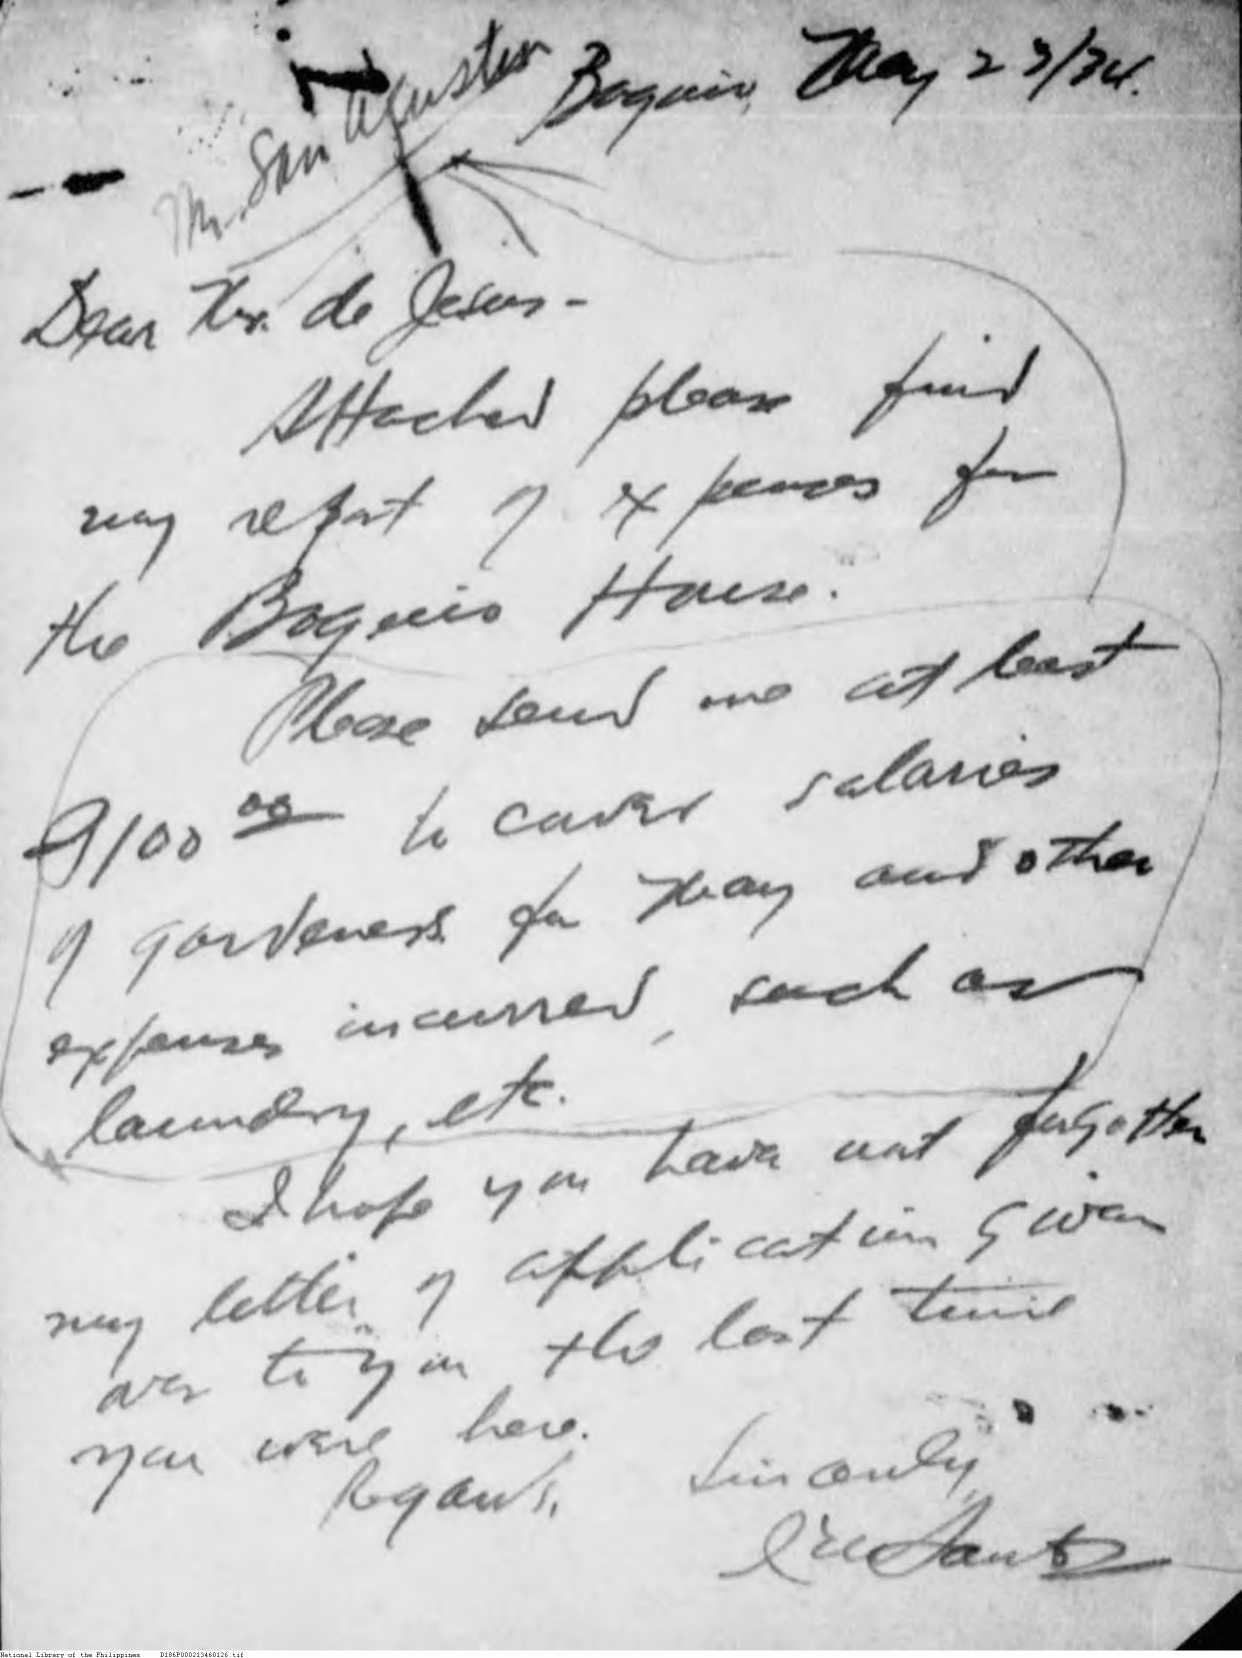 Mr. San Agustin
Baguio, May 23/34.
Dear Mr. de Jesus-
Attached please find
my report of expenses for
the Baguio House.
Please send me at least
₱100 00 to cover salaries
of gardeners for May and other
expenses incurred, such as
laundry, etc.
I hope you have not forgotten
my letter of application given
over to you the last time
you were here.
Regards. Sincerely,
Santos
National Library of the Philippines D186P000213460126.tif